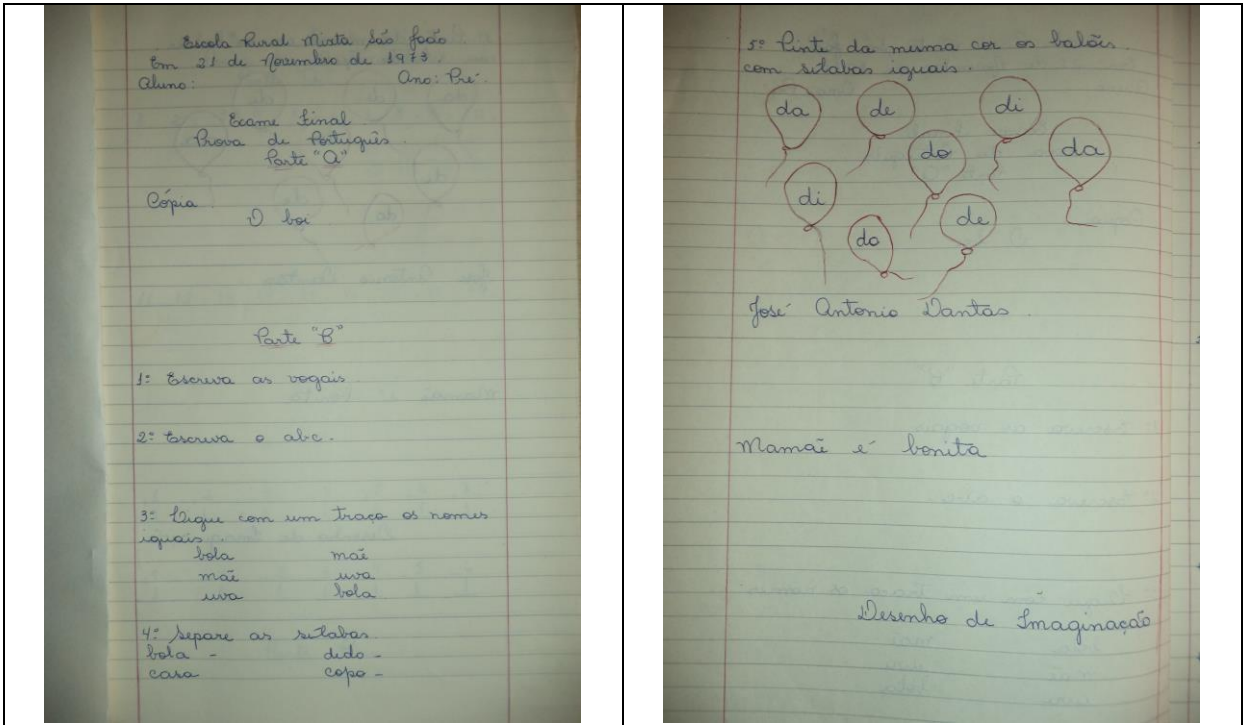 Escola Rural Mixta São João
Em 21 de Novembro de 1973.
Aluno: Ano: Pré.
Exame Final
Prova de Português
Parte "A"
Cópia
O boi
Parte "B"
1º Escreva as vogais
2º Escreva o abc.
3º Ligue com um traço os nomes
iguais.
bola mãe
mãe uva
uva bola
4º Separe as sílabas
bola - dedo -
casa copo -
5º Pinte da mesma cor os balões
com sílabas iguais.
da de di
do da
di de
do
José Antonio Dantas.
Mamãe é bonita
Desenho de Imaginação